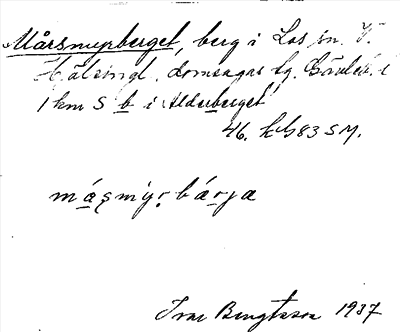 Mårsmyrberget, berg i Los sn. V.
Hälsingl. domsagas tg. Gävleb. l
1 km S b i Alderberget
46. k G83 SM.
måsmyrbárja
Ivar Bengtsson 1937